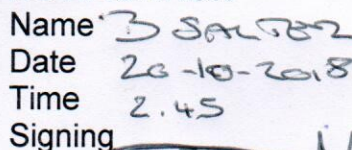 Name B SALTER
Date 20-10-2018
Time 2.45
Signing